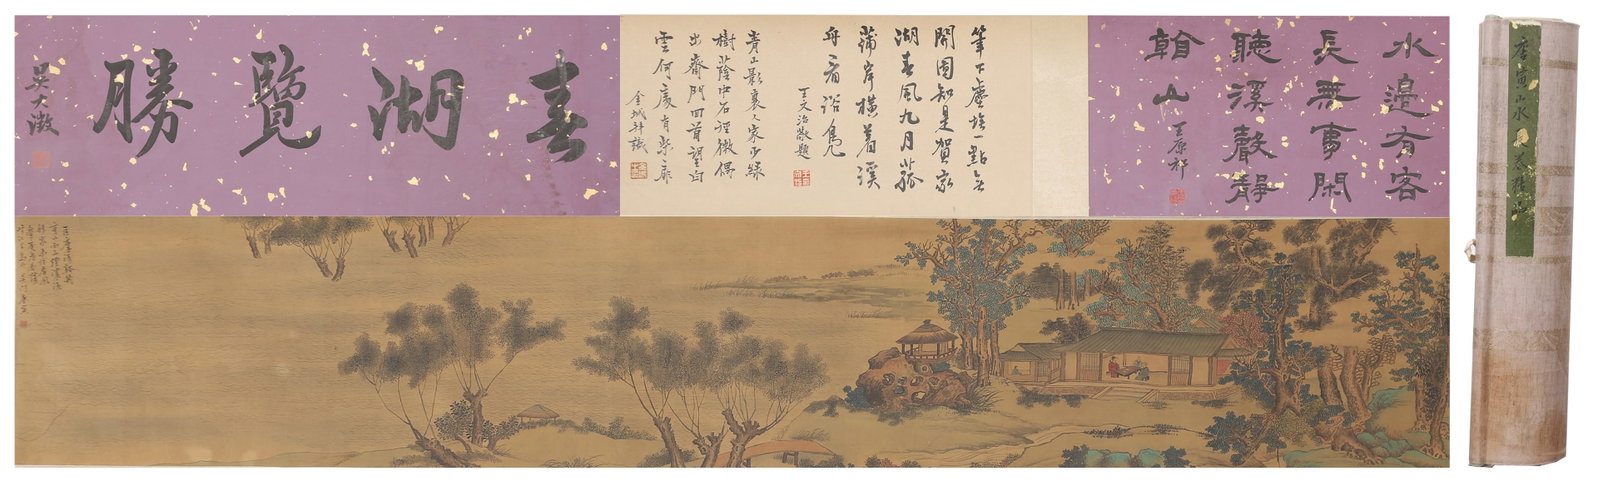 水邊有客
長無事閑
聽溪聲靜
山
王原祁
筆下塵埃一點無
開圖知是賀家
湖春風九月菰
蒲岸橫着溪
舟看浴鳧
王文治敬題
青山影裏人家少綠
樹蔭中石徑微偶
出齋門回首望白
雲何處有柴扉
金城拜識
春湖覽勝
吳大澂
唐寅山水